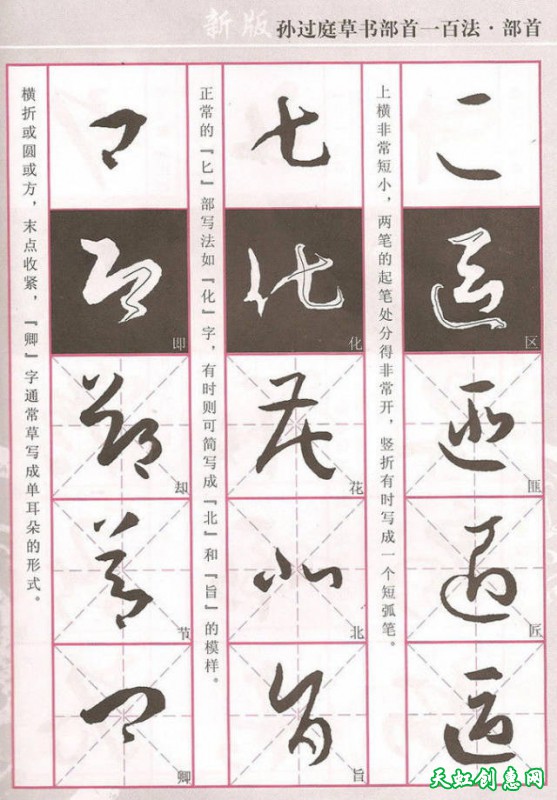 新版 孙过庭草书部首一百法·部首
上横非常短小，两笔的起笔处分得非常开，竖折有时写成一个短弧笔。
区
匪
匠
正常的『匕』部写法如『化』字，有时则可简写成『北』和『旨』的模样。
化
花
北
旨
横折或圆或方，末点收紧，『卿』字通常草写成单耳朵的形式。
即
却
节
卿
天虹创惠网